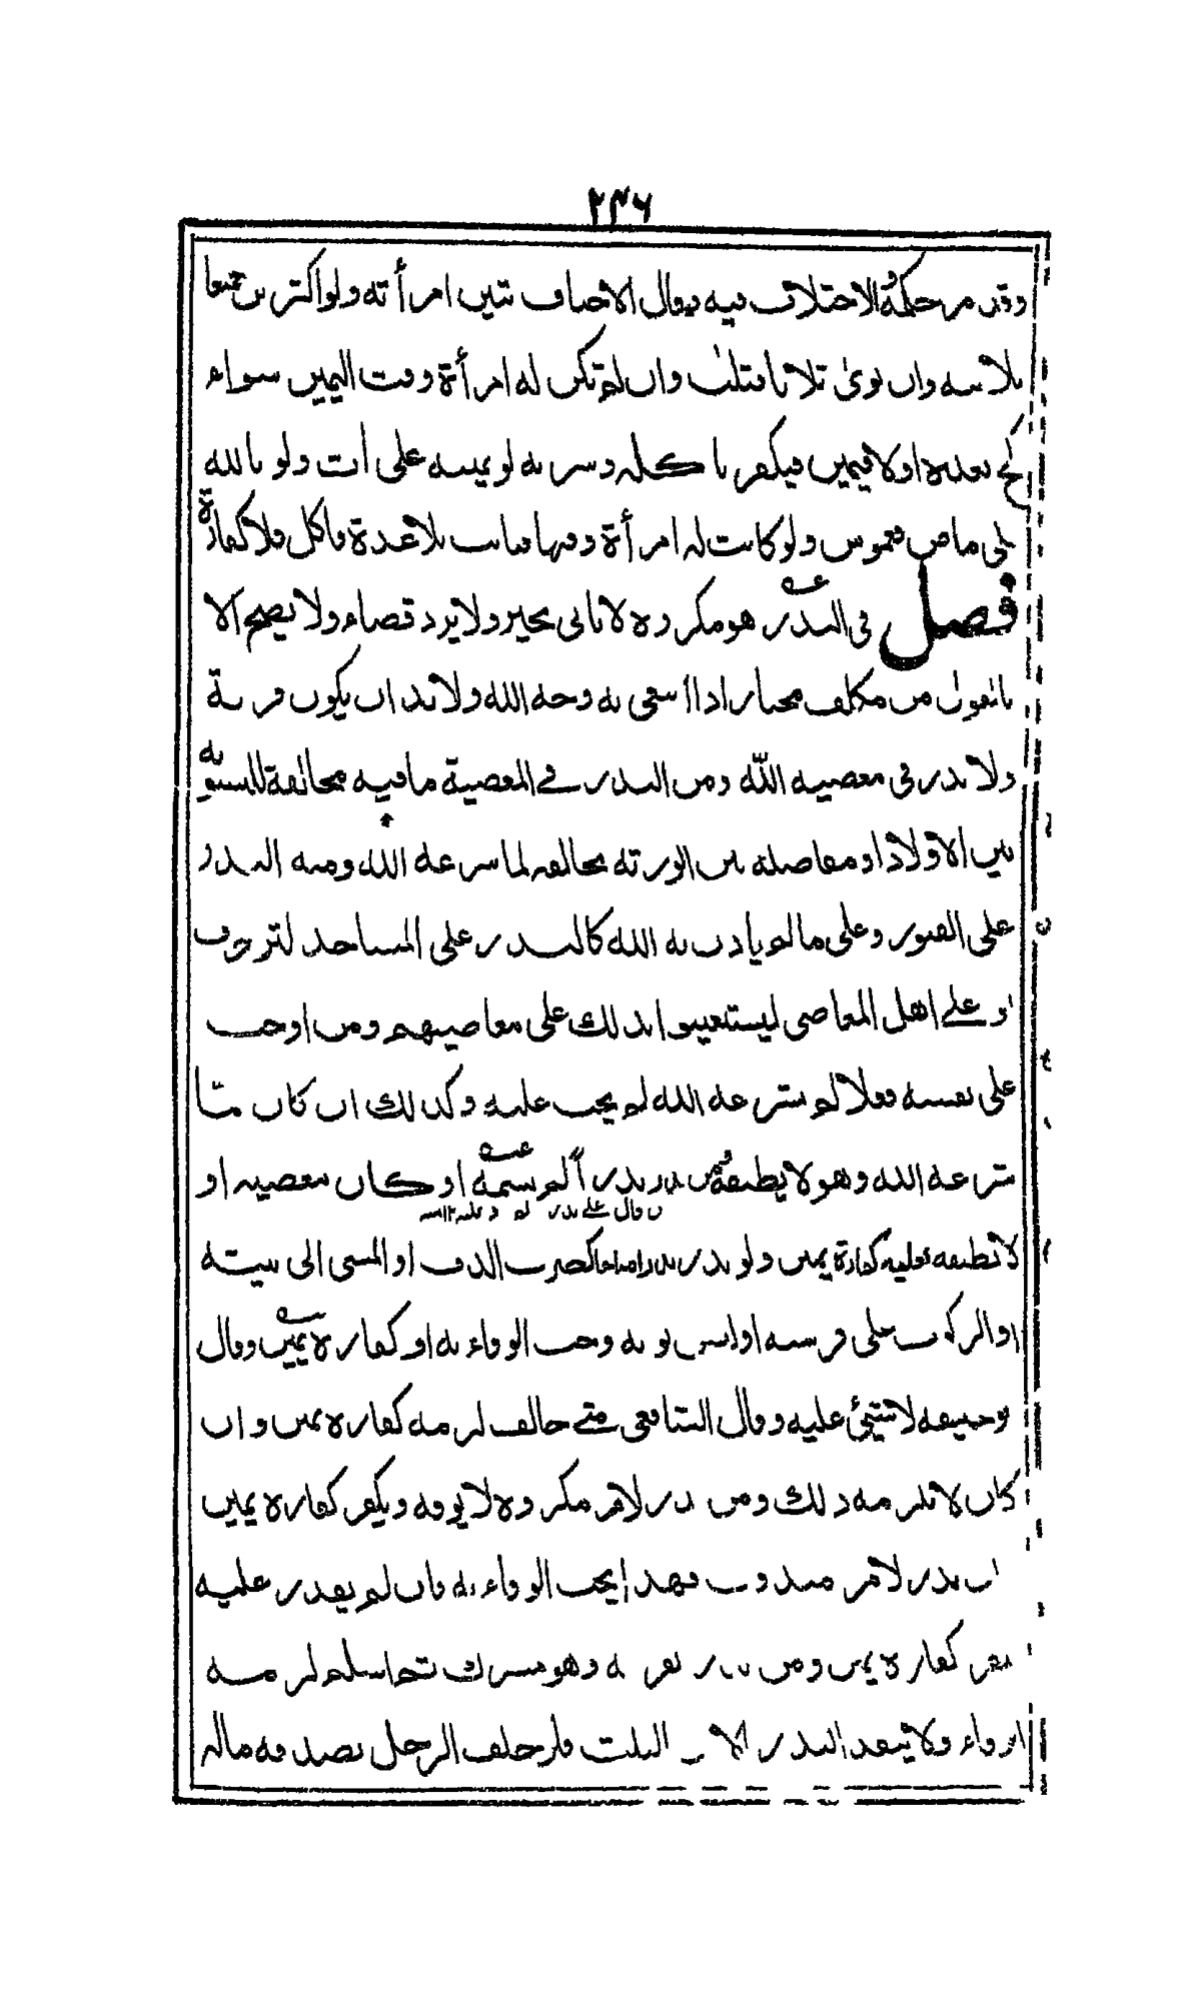 ٢٤٦
وقد مر حكمه والاختلاف فيه وقال الاحناف تبين امرأته ولو اكثر بن جميعا
بلا نية وان نوى ثلاثا فثلث وان لم تكن له امرأة وقت اليمين سواء
نكح بعده اولا فيمين فيكفر باكله وشربه لو يمينه على آت ولو بالله
على ماض فغموس ولو كانت له امرأة وقتها فبانت بلا عدة فاكل فلا كفارة
فصل في النذر هو مكروه لا ياتى بخير ولا يرد قضاء ولا يصح الا
بالقول من مكلف مختار اذا ابتغى به وجه الله ولا بد ان يكون قربة
ولا نذر فى معصية الله ومن النذر فى المعصية ما فيه مخالفة للتسوية
بين الاولاد او مفاضلة بين الورثة مخالفة لما شرعه الله ومنه النذر
على القبور وعلى ما لم ياذن به الله كالنذر على المساجد لتزخرف
او على اهل المعاصى ليستعينوا بذلك على معاصيهم ومن اوجب
على نفسه فعلا لم يشرعه الله لم يجب عليه وكذلك ان كان مما
شرعه الله وهو لا يطيقه ومن نذر نذرا لم يسمه او كان معصية او
قال على نذر
لا يطيقه فعليه كفارة يمين ولو نذر نذرا مباحا كضرب الدف او المشى الى بيته
او الركوب على فرسه او لبس ثوبه وجب الوفاء به او كفارة يمين وقال
ابوحنيفة لا شيئ عليه وقال الشافعى متى خالف لزمه كفارة يمين وان
كان لا يلزمه ذلك ومن نذر لامر مكروه لا يوفه ويكفر كفارة يمين
ان نذر لامر مندوب فهذا يجب الوفاء به فان لم يقدر عليه
كفر كفارة يمين ومن نذر بقربة وهو مشرك ثم اسلم لزمه
الوفاء ولا ينفذ النذر الا من الثلث فلو حلف الرجل بصدقة ماله